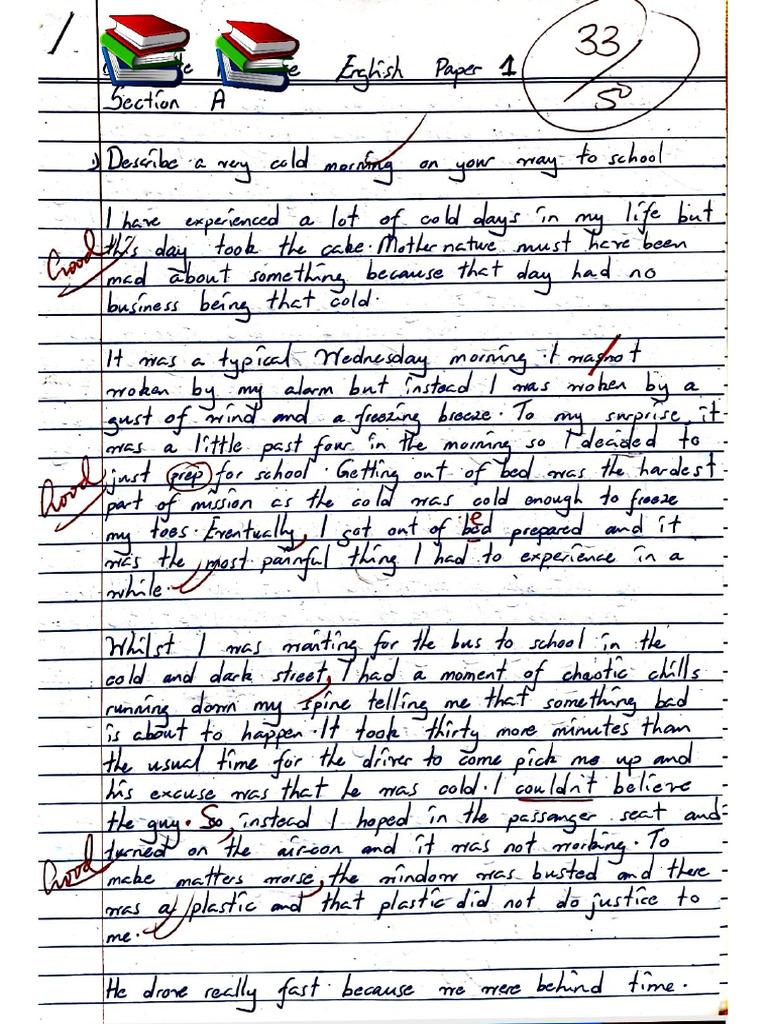 1
33
50
English Paper 1
Section A
1) Describe a very cold morning on your way to school
I have experienced a lot of cold days in my life but
Good
this day took the cake. Mother nature must have been
mad about something because that day had no
business being that cold.
It was a typical Wednesday morning. I was not
woken by my alarm but instead I was woken by a
gust of wind and a freezing breeze. To my surprise, it
was a little past four in the morning so I decided to
Good
just prep for school. Getting out of bed was the hardest
part of mission as the cold was cold enough to freeze
my toes. Eventually, I got out of bed prepared and it
was the most painful thing I had to experience in a
while.
Whilst I was waiting for the bus to school in the
cold and dark street, I had a moment of chaotic chills
running down my spine telling me that something bad
is about to happen. It took thirty more minutes than
the usual time for the driver to come pick me up and
his excuse was that he was cold. I couldn't believe
the guy. So, instead I hoped in the passanger seat and
turned on the air-con and it was not working. To
Good
make matters worse, the window was busted and there
was a plastic and that plastic did not do justice to
me.
He drove really fast because we were behind time.